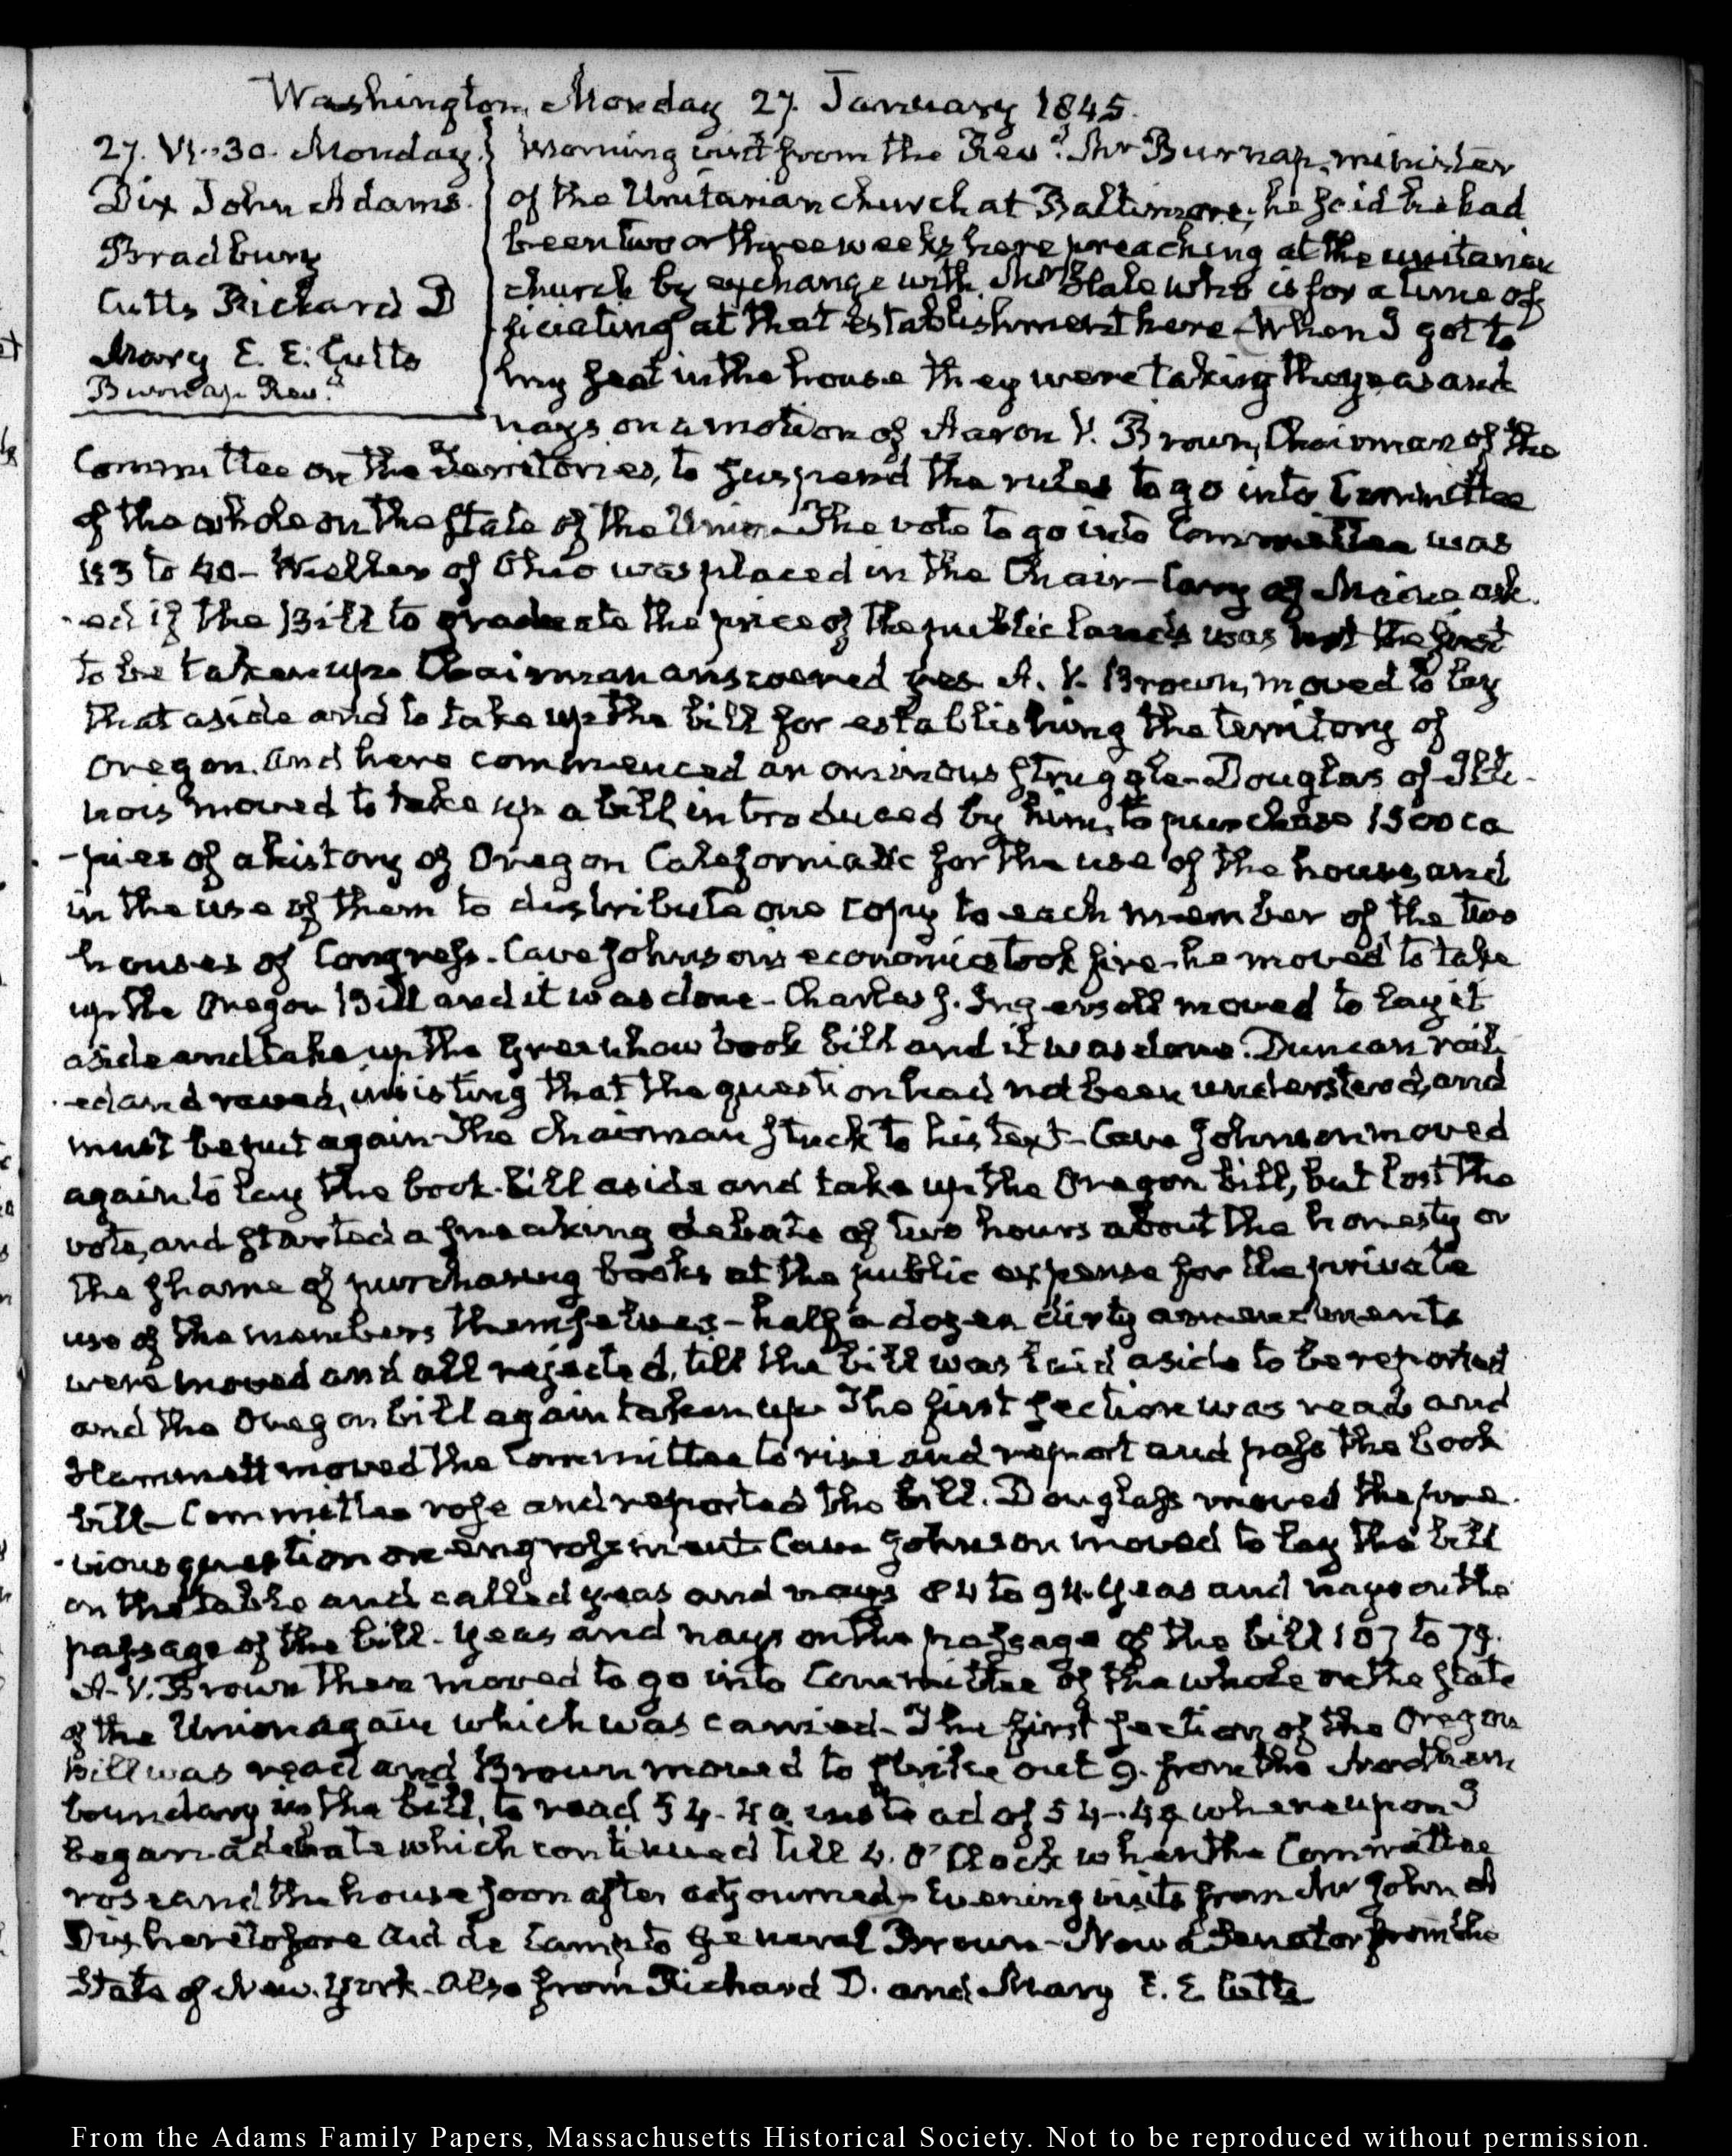 Washington, Monday 27. January 1845.
27. VI:30. Monday.
Dix John Adams.
Bradbury
Cutts Richard D
Mary E. E. Cutts
Burnap Revd.
Morning visit from the Revd. Mr Burnap, minister
of the Unitarian church at Baltimore; he said he had
been two or three weeks here preaching at the unitarian
church by exchange with Mr who is for a time of
ficiating at that establishment here. When I got to
my seat in the house they were taking the yeas and
nays on a motion of Aaron V. Brown, Chairman of the
Committee on the Territories, to suspend the rules to go into Committee
of the whole on the state of the Union. The vote to go into Committee was
to 40 - Weller of Ohio was placed in the Chair - Cary of Maine ask
-ed if the Bill to graduate the price of the public lands was not the first
to be taken up. Chairman answered yes. A. V. Brown, moved to lay
that aside and to take up the bill for establishing the territory of
Oregon. And here commenced an ominous struggle - Douglas of Illi-
nois moved to take up a bill introduced by him, to purchase 1500 co
-pies of a history of Oregon California &c for the use of the house, and
in the use of them to distribute one copy to each member of the two
houses of Congress. Cave Johnson's economics took fire - he moved to take
up the Oregon Bill and it was done - Charles J. Ingersoll moved to lay it
aside and take up the Greenhow book bill and it was done. Duncan rail
-ed and raved, insisting that the question had not been understood, and
must be put again - The chairman stuck to his text - Cave Johnson moved
again to lay the book-bill aside and take up the Oregon bill, but lost the
vote, and started a sneaking debate of two hours about the honesty or
the shame of purchasing books at the public expense for the private
use of the members themselves - half a dozen dirty amendments
were moved and all rejected, till the bill was laid aside to be reported
and the Oregon bill again taken up. The first section was read and
Hammett moved the Committee to rise and report and pass the book
bill - Committee rose and reported the bill. Douglass moved the pre-
-vious question on engrossment Cave Johnson moved to lay the bill
on the table and called yeas and nays 84 to 94. Yeas and nays on the
passage of the bill - Yeas and nays on the passage of the bill 107 to 79.
A. V. Brown then moved to go into Committee of the whole on the state
of the Union again which was carried - The first section of the Oregon
Bill was read and Brown moved to strike out 9. from the Northern
boundary in the bill, to read 54-40 instead of 54-49 whereupon I
began a debate which continued till 4. O'Clock when the Committee
rose and the house soon after adjourned - Evening visits from Mr John A
Dix heretofore Aid de Camp to General Brown - Now a Senator from the
State of New-York. Also from Richard D. and Mary E. E. Cutts
From the Adams Family Papers, Massachusetts Historical Society. Not to be reproduced without permission.